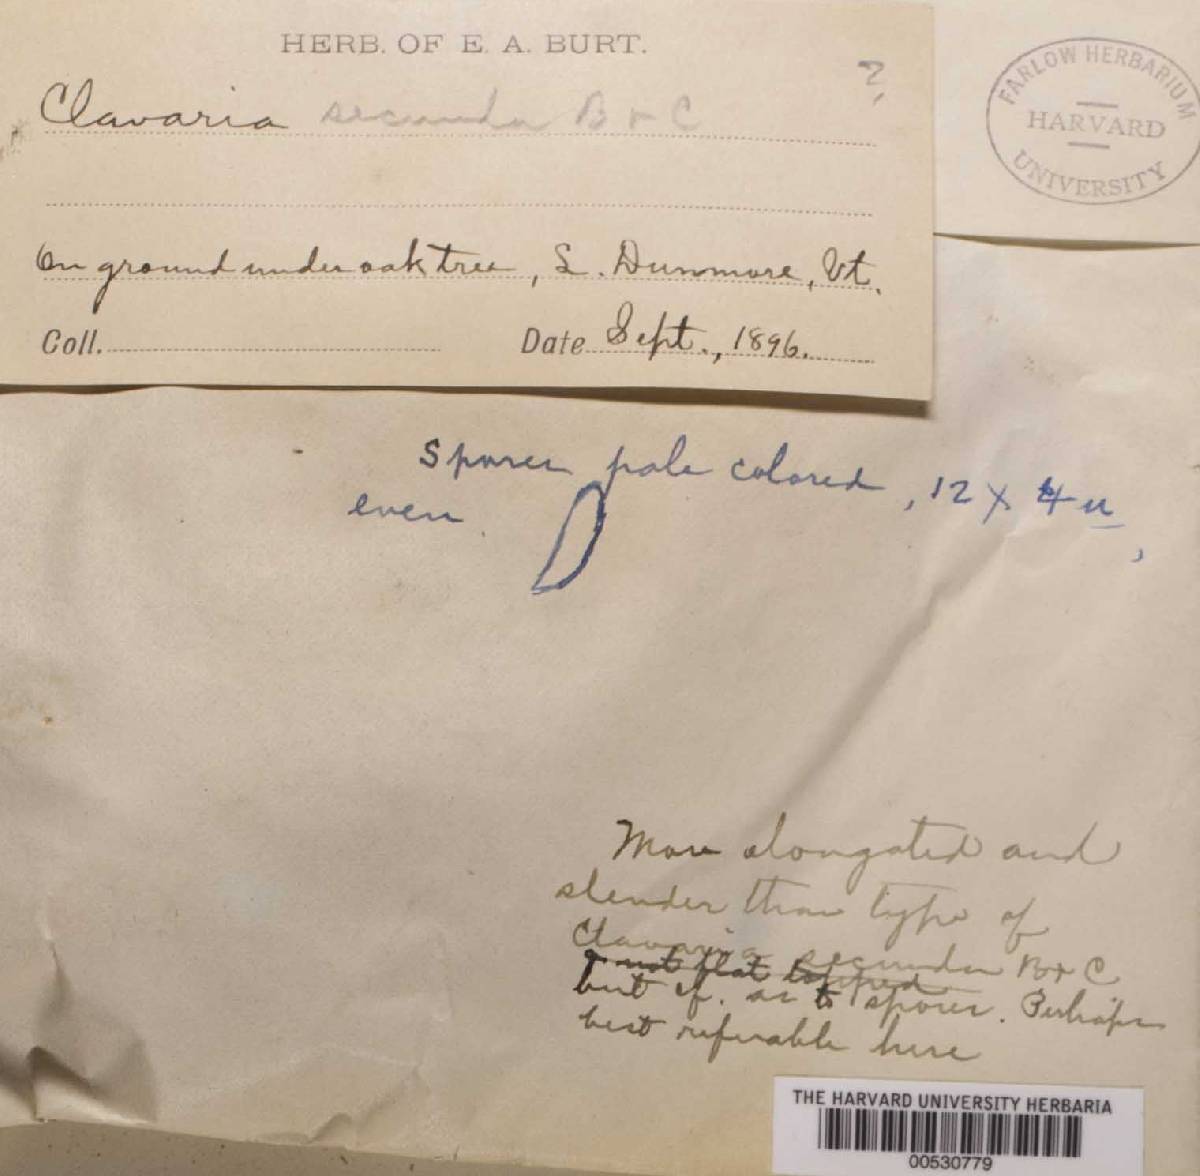 HERB. OF E. A. BURT.
?
Clavaria secunda B + C
On ground under oak tree, L. Dunmore, Vt.
Coll. Date Sept., 1896.
FARLOW HERBARIUM
HARVARD
UNIVERSITY
Spores pale colored, 12 X 4 u,
even
More elongated and
slender than type of
Clavaria secunda B + C
+ not flat topped
but cf. as to spores. Perhaps
best referable here
THE HARVARD UNIVERSITY HERBARIA
00530779